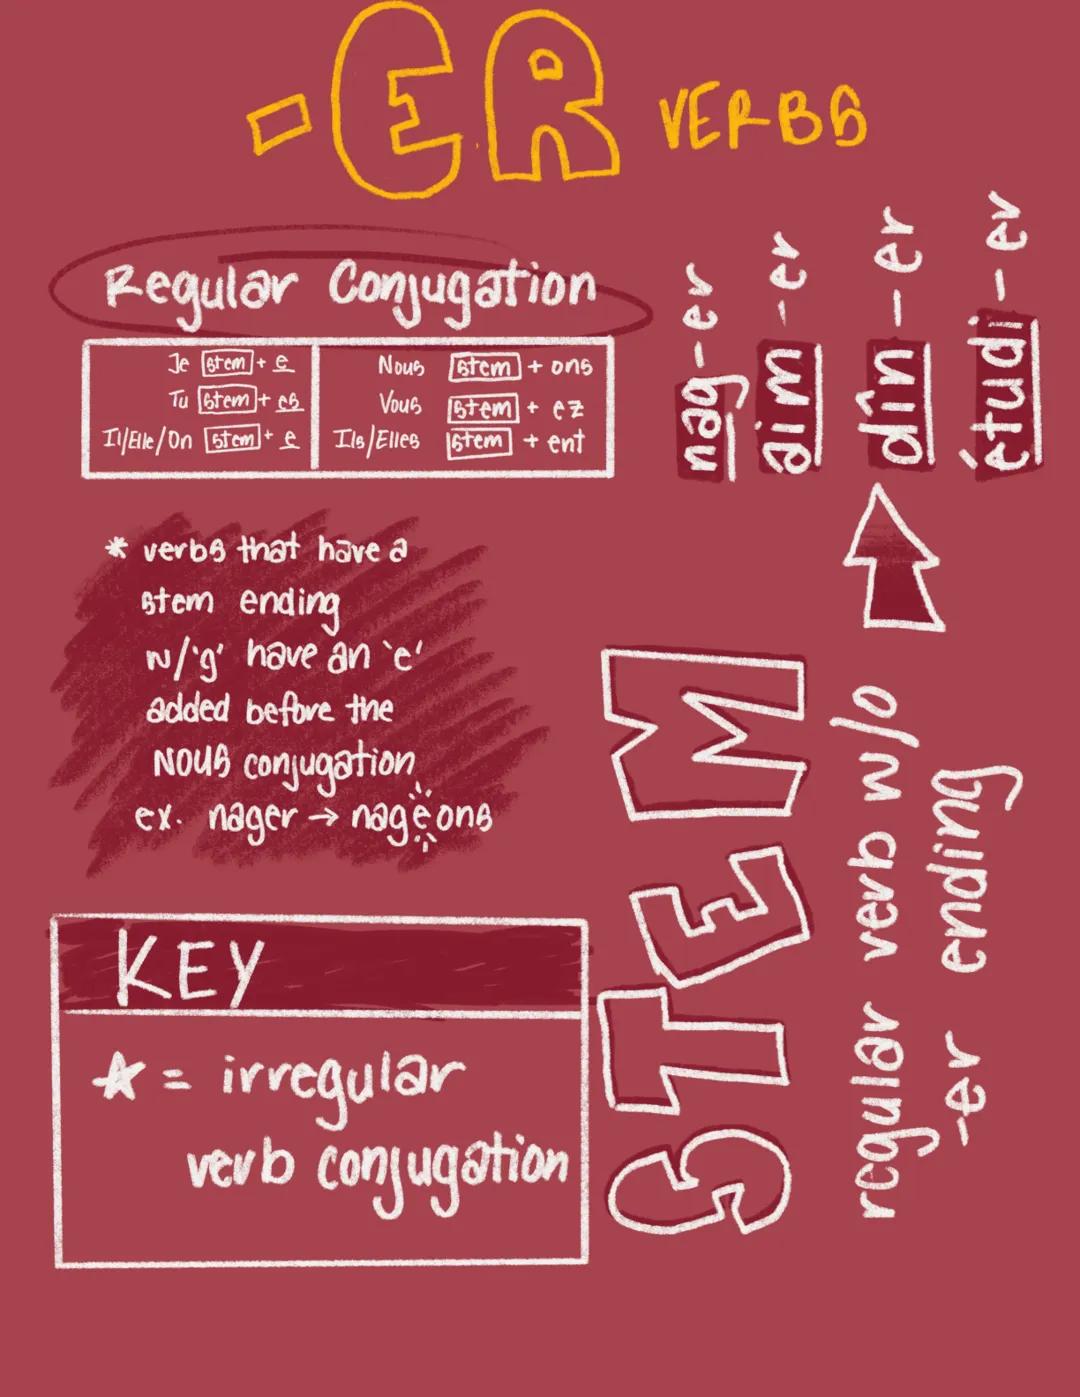 -ER VERBS
Regular Conjugation
Je stem + e
Tu stem + es
Il/Elle/On stem + e
Nous stem + ons
Vous stem + ez
Ils/Elles stem + ent
* verbs that have a
stem ending
w/'g' have an 'e'
added before the
NOUS conjugation
ex. nager → nageons
KEY
☆ = irregular
verb conjugation
nag-er
aim-er
dîn-er
étudi-er
STEM
regular verb w/o
-er ending